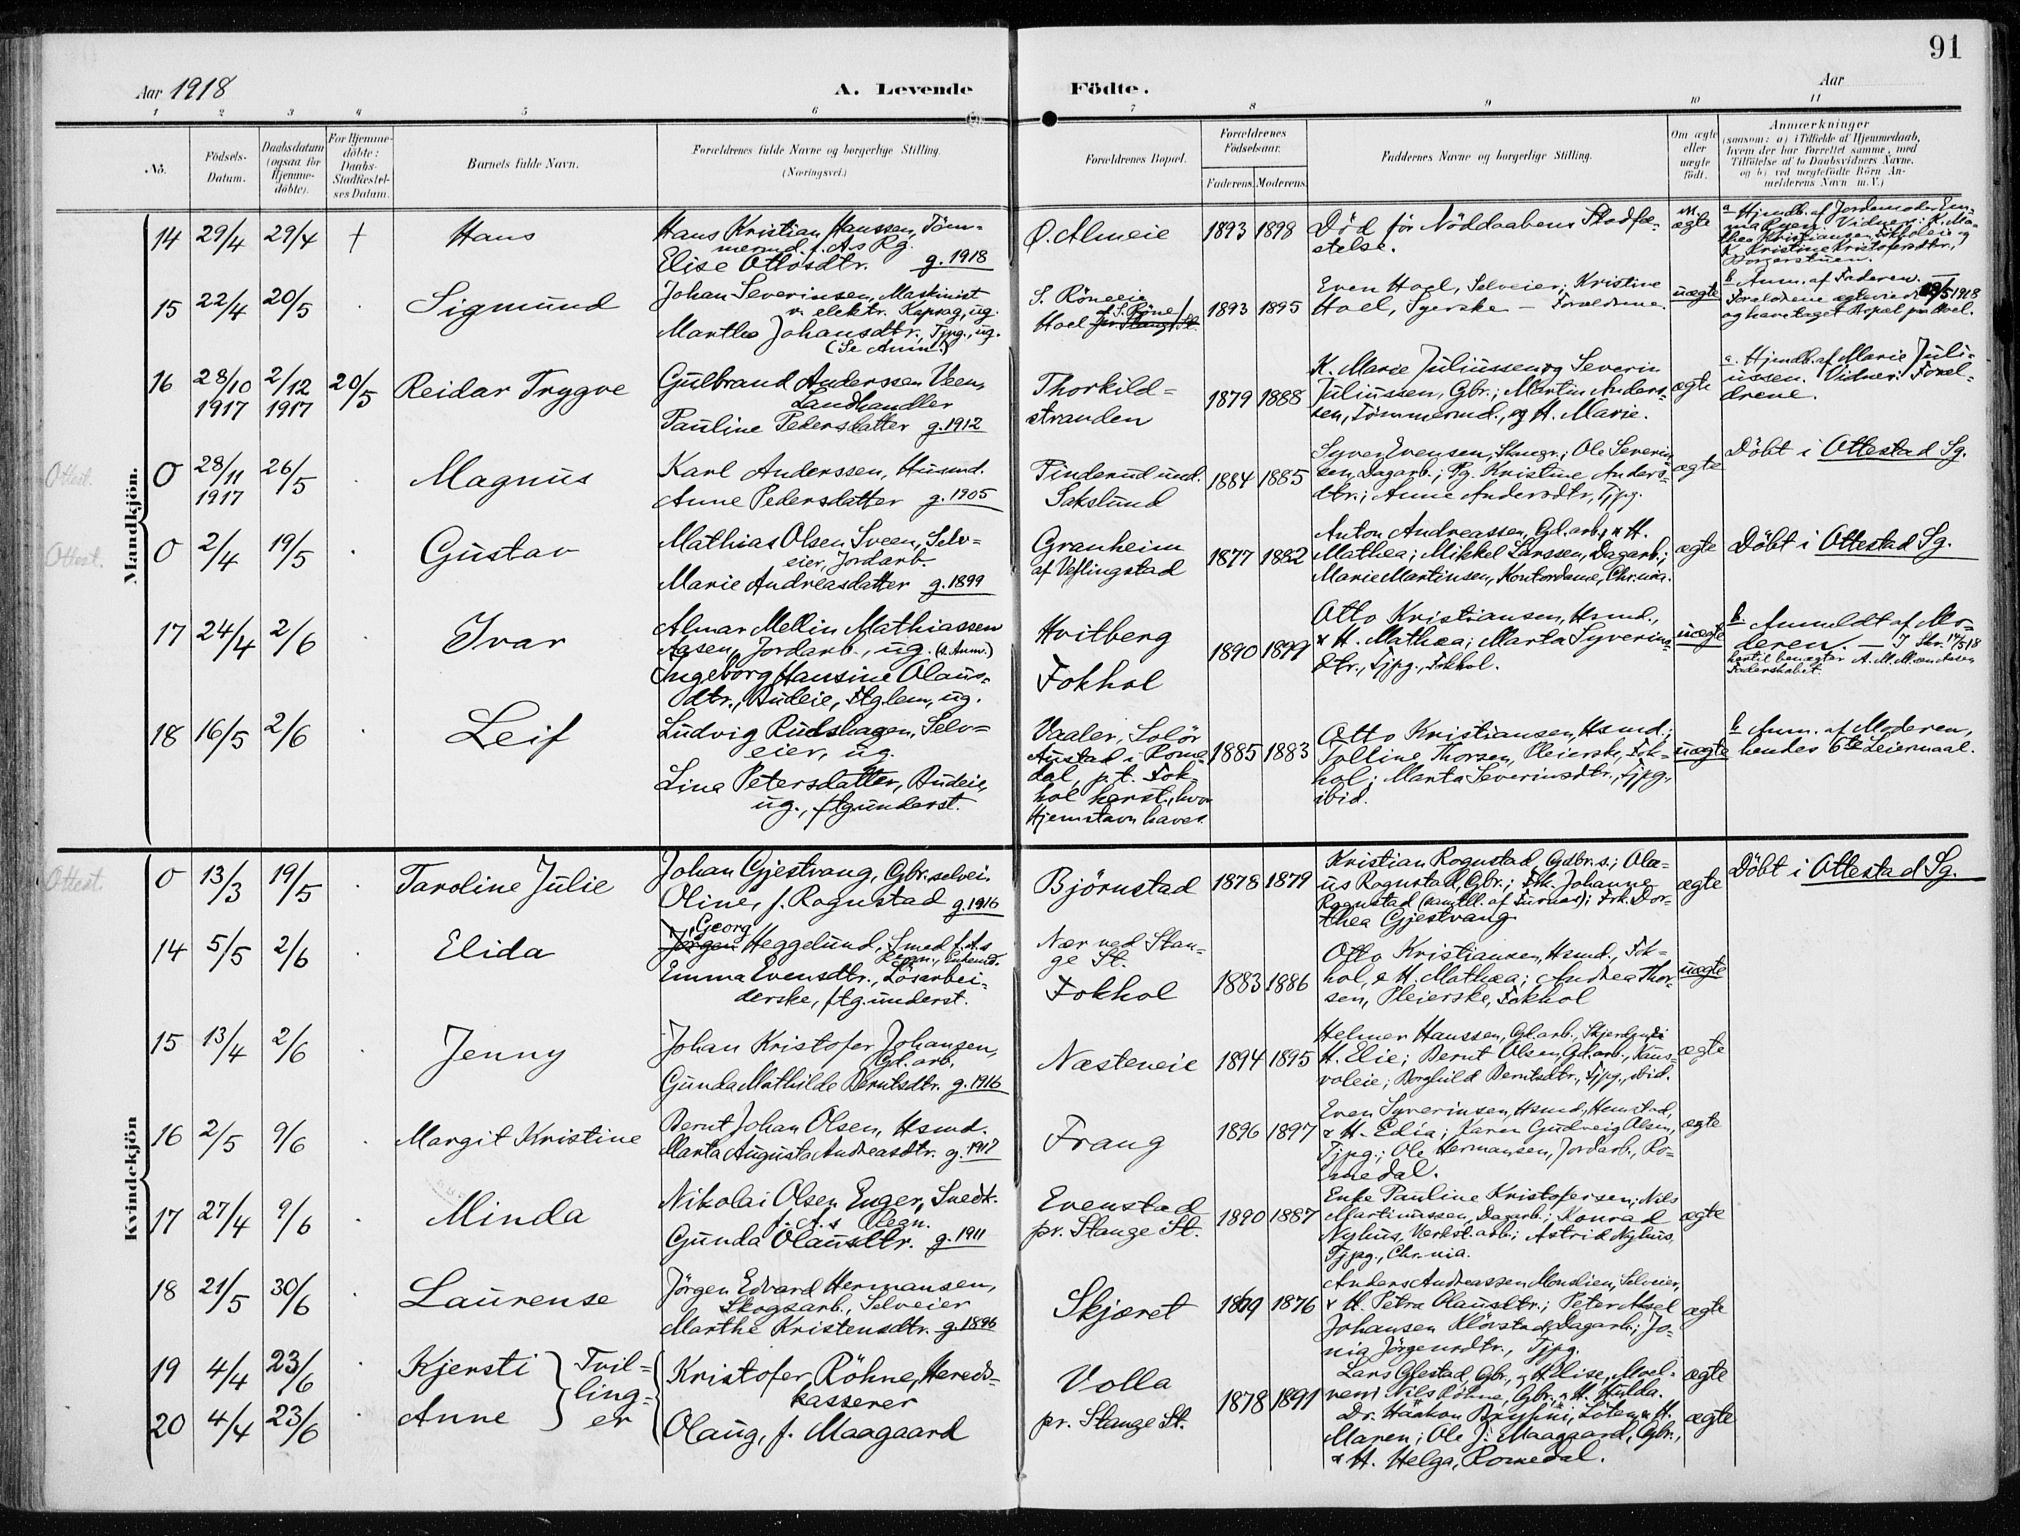 91
Aar 1918
A. Levende Födte.
Aar
1 2 3 4 5 6 7 8 9 10 11
No.
Födsels-Datum.
Daabsdatum (ogsaa for Hjemme-döbte).
For Hjemme-döbte: Daabs-Stadfæstel-ses Datum.
Barnets fulde Navn.
Forældrenes fulde Navne og borgerlige Stilling. (Næringsvei.)
Forældrenes Bopæl.
Forældrenes Födselsaar.
Faderens. Moderens.
Faddernes Navne og borgerlige Stilling.
Om ægte eller uægte födt.
Anmærkninger
(saasom: a) i Tilfælde af Hjemmedaab, hvem der har forrettet samme, med Tilföielse af to Daabsvidners Navne, og b) ved uægtefödte Börn An-melderens Navn m. V.)
Mandkjön.
14 29/4 29/4 † Hans
Hans Kristian Hanssen, Töm-
mermd. f. A.s Rg.
Elise Ottosdtr. g. 1918
Ö. Almeie 1893 1898
Död för Nöddaabens Stadfæ-
stelse.
ægte
a Hjmdb. af Jordemoder Em-
ma Ryen. Vidner: K. Ma-
thea Kristiansen, Fokholeie og
K. Kristine Kristofersdtr.,
Borgerstuen.
15 22/4 20/5 Sigmund
Johan Severinsen, Maskinist
v. elektr. Kapsag, ug.
Marthe Johansdtr., Tjpg., ug.
(Se Anm.)
S. Röneeie
Hoel af S. Röne
1893 1895
Even Hoel, Selveier; Kristine
Hoel, Syerske — Forældrene.
uægte
b Anm. af Faderen. —
Forældrene ægteviedes 1918
og have taget Bopæl paa Hoel.
16 28/10 1917 2/12 1917 20/5 Reidar Trygve
Gulbrand Anderssen Veen,
Landhandler
Pauline Pedersdatter g. 1912
Thorkild=
stranden
1879 1888
K. Marie Juliussen og Severin
Juliussen, Gbr.; Martin Anders-
sen, Tömmermd., og H. Marie.
ægte
a. Hjmdb. af Marie Juli-
ussen. Vidner: Foræl-
drene.
Ottest. 0 28/11 1917 26/5 Magnus
Karl Anderssen, Husmd.
Anne Pedersdatter g. 1905
Finderud und.
Sakslund
1884 1885
Syver Evensen, Skogr.; Ole Severin-
sen, Dagarb.; Pg. Kristine Anders-
dtr.; Anne Andersdtr, Tjpg.
ægte
Döbt i Ottestad Sg.
Ottest. 0 2/4 19/5 Gustav
Mathias Olsen Sveen, Selv=
eier, Jordarb.
Marie Andreasdatter g. 1899
Granheim
af Veflingstad
1877 1882
Anton Andreassen, Gd.arb., & H.
Mathea; Mikkel Larssen, Dagarb.;
Marie Martinsen, Kontordame, Chr.nia.
ægte
Döbt i Ottestad Sg.
17 24/4 2/6 Ivar
Almar Mellin Mathiassen
Aasen, Jordarb., ug. (s. Anm.)
Ingeborg Hansine Olaus-
dtr., Budeie, Ftg.lem, ug.
Hvitberg
Fokhol
1890 1899
Otto Kristiansen, Hsmd.,
& H. Mathea; Marta Syverins-
dtr., Tjpg., Fokhol.
uægte
b. Anmeldt af Mo-
deren. — I Skr. 14/5 18
hertil benægter A. M. M.sen Aasen
Faderskabet.
18 16/5 2/6 Leif
Ludvig Rudshagen, Selv=
eier, ug.
Line Petersdatter, Budeie,
ug., ftg.underst.
Vaaler, Solör
Austad i Rome-
dal, p.t. Fok-
hol herst., hvor
Hjemstavn haves
1885 1883
Otto Kristiansen, Hsmd.;
Tolline Thorsen, Pleierske, Fok-
hol; Marta Severinsdtr., Tjpg.,
ibid.
uægte
b Anm. af Moderen,
hendes 6te Leiermaal.
Kvindekjön
Ottest. 0 13/3 19/5 Taroline Julie
Johan Gjestvang, Gbr. selvei.
Oline, f. Rognstad g. 1916
Björnstad 1878 1879
Kristian Rognstad, Gdbr.s.; Ola-
us Rognstad, Gbr.; Frk. Johanne
Rognstad (samtl. af Furnes); Frk. Dor-
thea Gjestvang
ægte
Döbt i Ottestad Sg.
14 5/5 2/6 Elida
Georg
Jörgen Heggelund, Smed f. A.s
Regn., Enkemd.
Emma Evensdtr., Lösarbei-
derske, ftg.underst.
Nær ved Stan-
ge St.
Fokhol
1883 1886
Otto Kristiansen, Hsmd., Fok-
hol, & H. Mathea; Andrea Thor-
sen, Pleierske, Fokhol
uægte
15 13/4 2/6 Jenny
Johan Kristofer Johansen,
Gd.arb.
Gunda Mathilde Berntsdtr. g. 1916
Næsteneie 1894 1895
Helmer Hanssen, Gd.arb.,
H. Elie; Bernt Olsen, Gd.arb., Kaus-
voleie; Borghild Berntsdtr., Tjpg., ibid.
ægte
16 2/5 9/6 Margit Kristine
Bernt Johan Olsen, Hsmd.
Marta Augusta Andreasdtr. g. 1917
Frang 1896 1897
Even Syverinsen, Hsmd., Hemstad,
& H. Edia; Karen Gudveig Olsen,
Tjpg.; Ole Hermansen, Jordarb., Ro-
medal.
ægte
17 27/4 9/6 Minda
Nikolai Olsen Enger, Snedk.
f. A.s Regn.
Gunda Olausdtr. g. 1911
Evenstad
pr. Stange St.
1890 1887
Enke Pauline Kristofersen; Nils
Martinussen, Dagarb.; Konrad
Nyhus, Værkst.arb.; Astrid Nyhus,
Tjpg., Chr.nia.
ægte
18 21/5 30/6 Laurense
Jörgen Edvard Hermansen,
Skogsarb., Selveier
Marthe Kristensdtr. g. 1896
Skjæret 1869 1876
Anders Andreassen Monslien, Selveier,
& H. Petra Olausdtr.; Peter Aksel
Johansen Klövstad, Dagarb.; Jo-
nia Jörgensdtr., Tjpg.
ægte
19 4/4 23/6 Kjersti
20 4/4 23/6 Anne
Tvil=
ling=
er
Kristofer Röhne, Hereds-
kasserer
Olaug, f. Maagaard
Volla
pr. Stange St.
1878 1891
Lars Gjestad, Gbr., & H. Elise,
Nils Röhne, Gbr., & H. Hulda.
Dr. Haakon Bryhni, Löten, & H.
Maren; Ole J. Maagaard, Gbr.,
& H. Helga, Romedal.
ægte
ægte